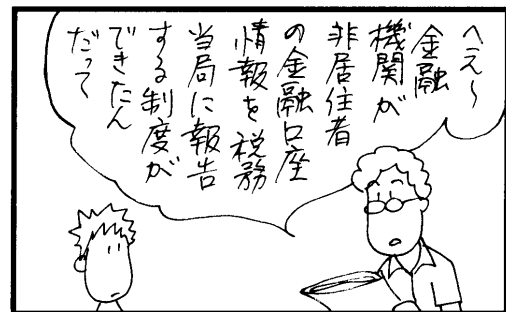 へえ〜
金融
機関が
非居住者
の金融口座
情報を税務
当局に報告
する制度が
できたん
だって